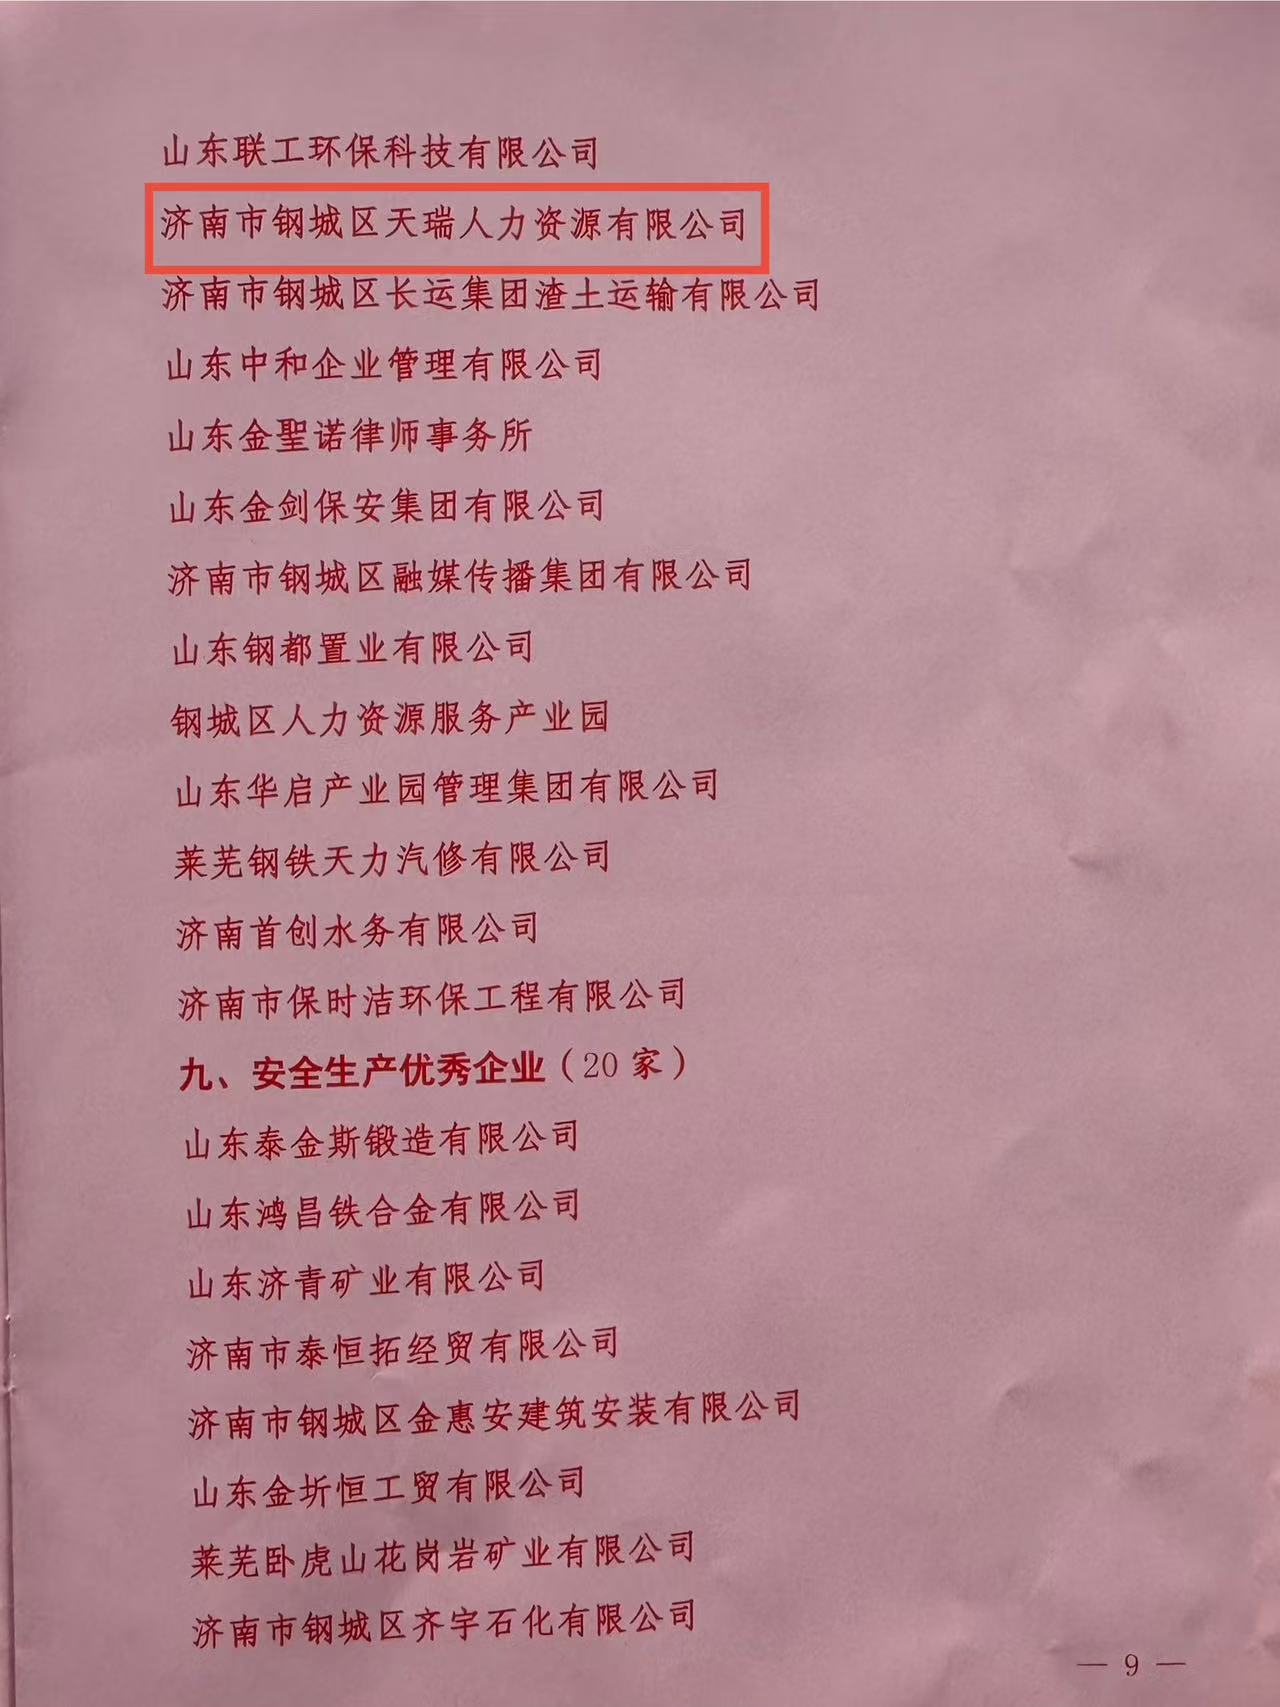 山东联工环保科技有限公司
济南市钢城区天瑞人力资源有限公司
济南市钢城区长运集团渣土运输有限公司
山东中和企业管理有限公司
山东金聖诺律师事务所
山东金剑保安集团有限公司
济南市钢城区融媒传播集团有限公司
山东钢都置业有限公司
钢城区人力资源服务产业园
山东华启产业园管理集团有限公司
莱芜钢铁天力汽修有限公司
济南首创水务有限公司
济南市保时洁环保工程有限公司
九、安全生产优秀企业（20 家）
山东泰金斯锻造有限公司
山东鸿昌铁合金有限公司
山东济青矿业有限公司
济南市泰恒拓经贸有限公司
济南市钢城区金惠安建筑安装有限公司
山东金圻恒工贸有限公司
莱芜卧虎山花岗岩矿业有限公司
济南市钢城区齐宇石化有限公司
— 9 —